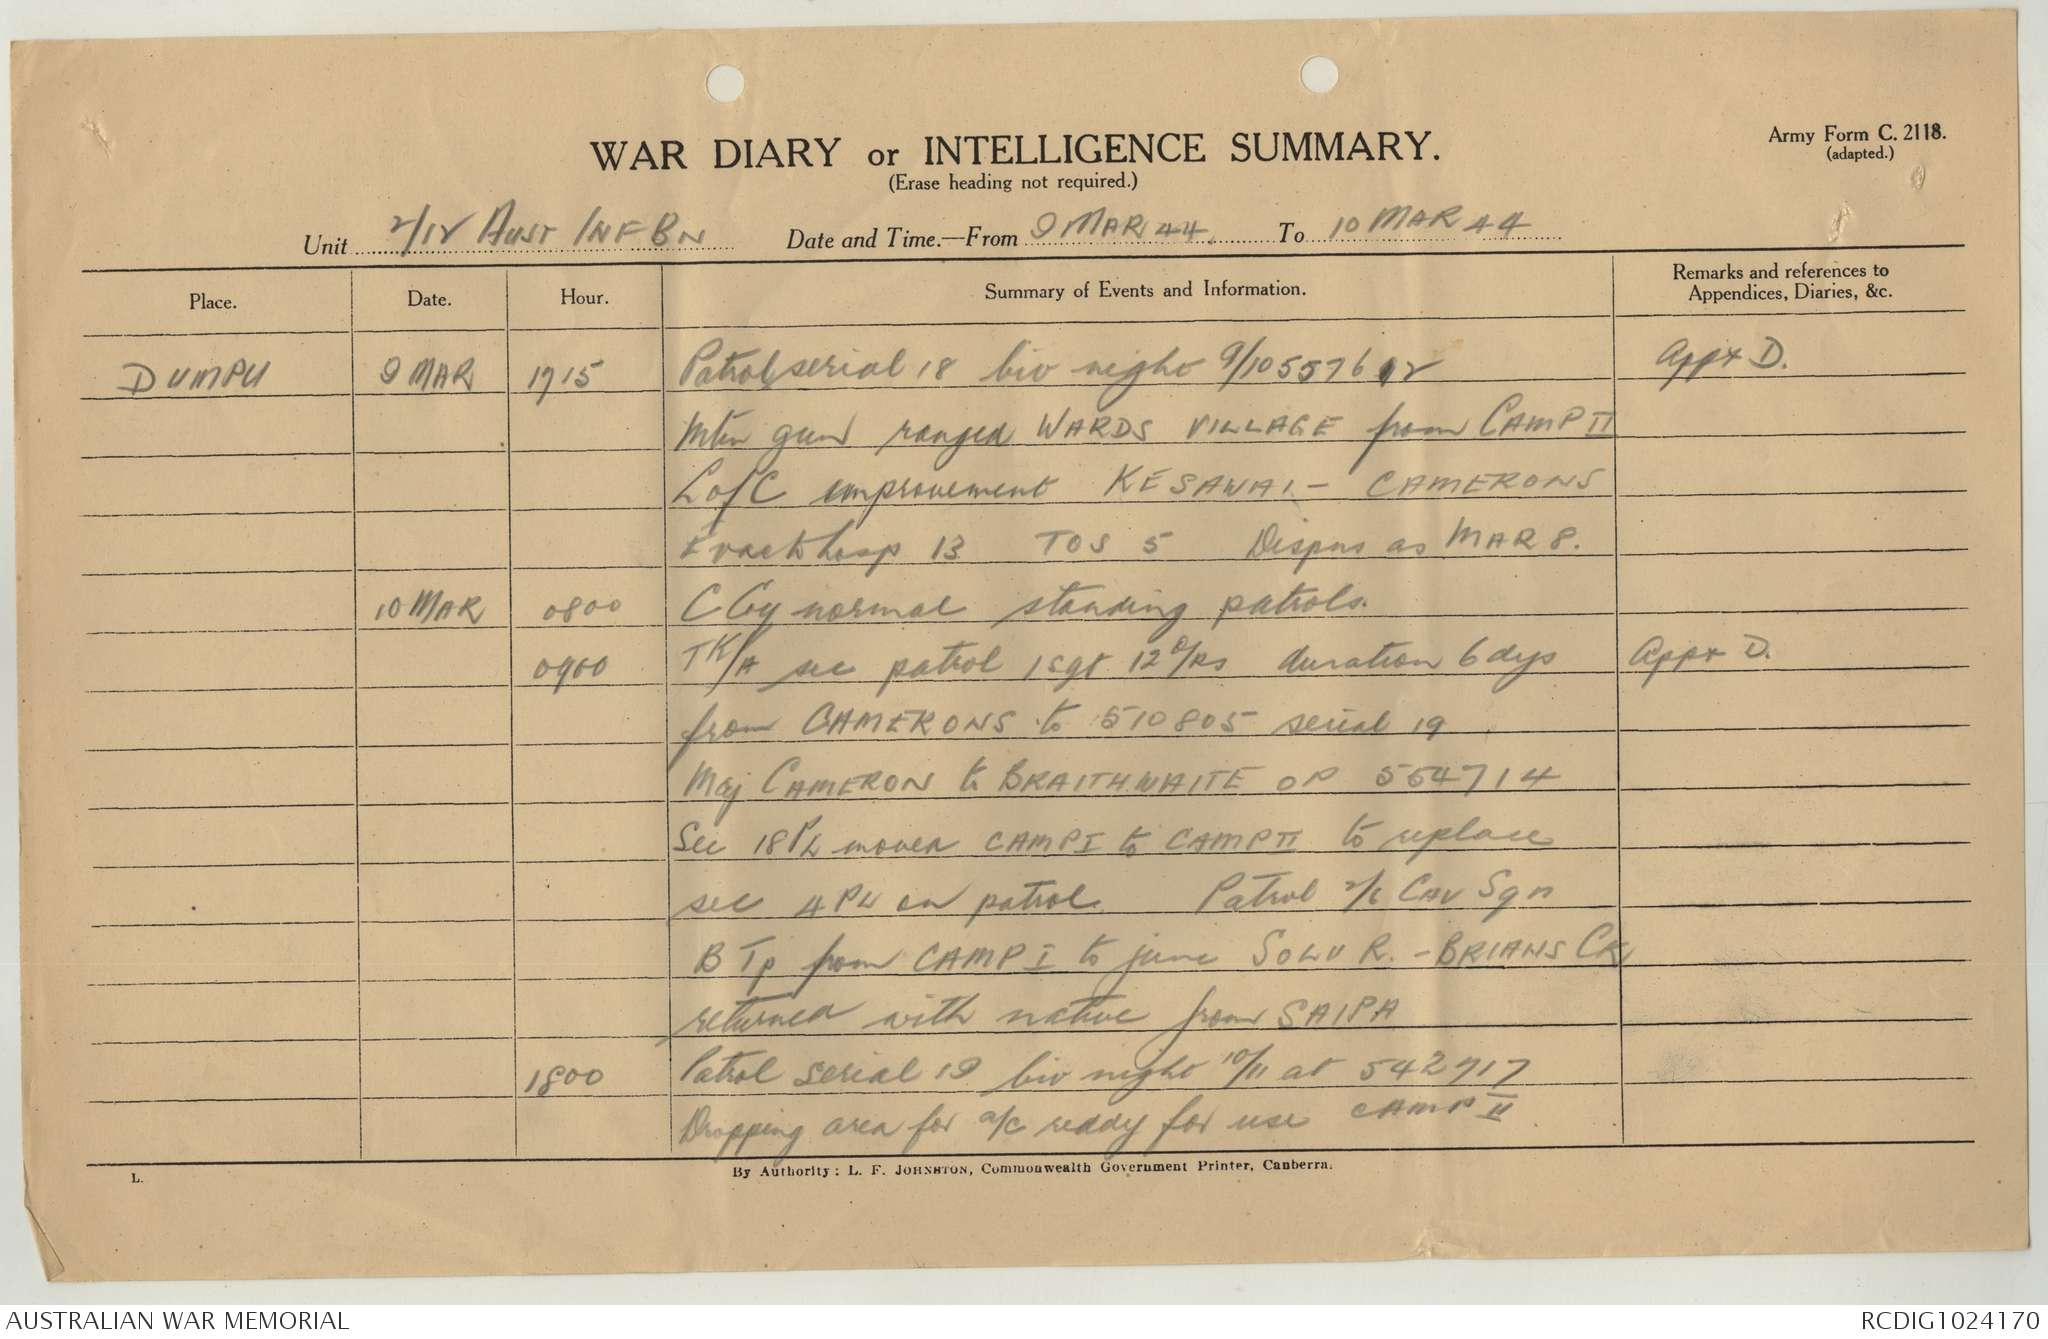 Army Form C. 2118.
(adapted.)
WAR DIARY or INTELLIGENCE SUMMARY.
(Erase heading not required.)
Unit 2/12 AUST INF BN Date and Time.—From 9 MAR 44. To 10 MAR 44
Place. Date. Hour. Summary of Events and Information. Remarks and references to Appendices, Diaries, &c.
DUMPU 9 MAR 1715 Patrol serial 18 biv night 9/10 557612 Appx D.
Mtn gun ranged WARDS VILLAGE from CAMP II
L of C improvement KESAWAI - CAMERONS
Evac to hosp 13 TOS 5 Dispns as MAR 8.
10 MAR 0800 C Coy normal standing patrols.
0900 TK/A sec patrol 1 sgt 12 O/Rs duration 6 dys Appx D.
from CAMERONS to 510805 serial 19
Maj CAMERON to BRAITHWAITE OP 554714
Sec 18 PL moved CAMP I to CAMP II to replace
sec 4 PL on patrol. Patrol 2/6 CAV Sqn
B Tp from CAMP I to junc SOLU R. - BRIANS CK
returned with native from SAIPA
1800 Patrol serial 19 biv night 10/11 at 542717
Dropping area for a/c ready for use CAMP II
L. By Authority: L. F. JOHNSTON, Commonwealth Government Printer, Canberra.
AUSTRALIAN WAR MEMORIAL RCDIG1024170